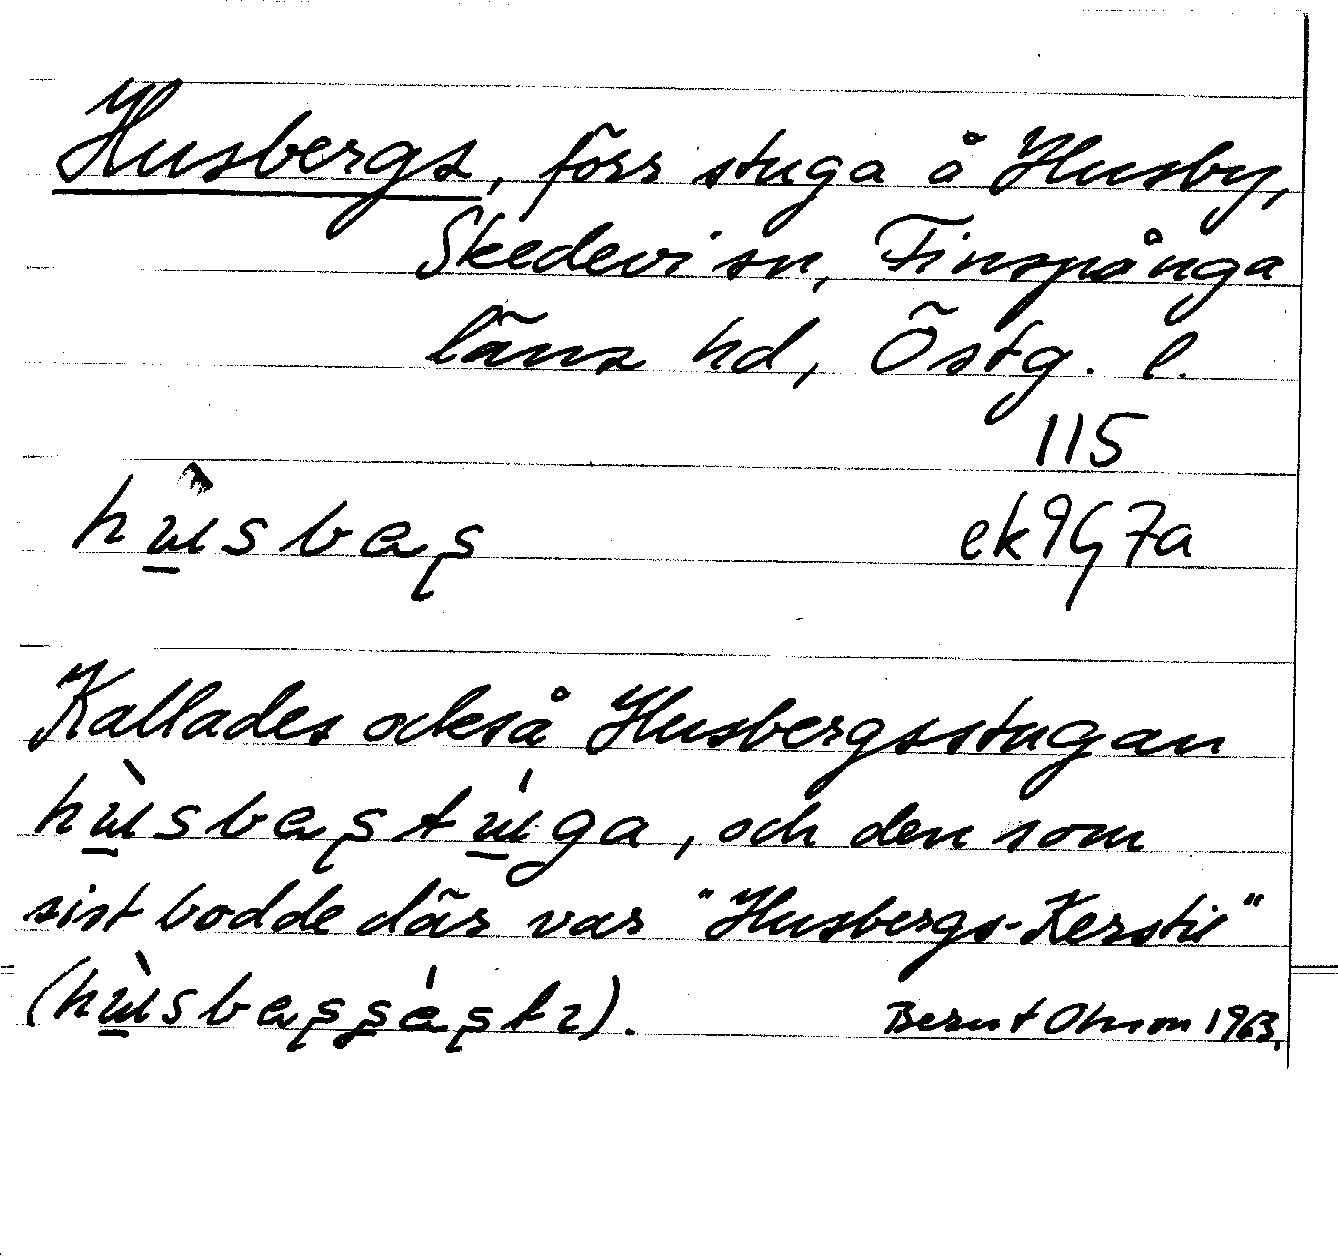 Husbergs, förr stuga å Husby,
Skedevi sn, Finspånga
läns hd, Östg. l.
115
hû̲sbas̨ ek9G7a
Kallades också Husbergsstugan
hù̲sbas̨tú̲ga, och den som
sist bodde där var "Husbergs-Kerstis"
Bernt Olsson 1963.